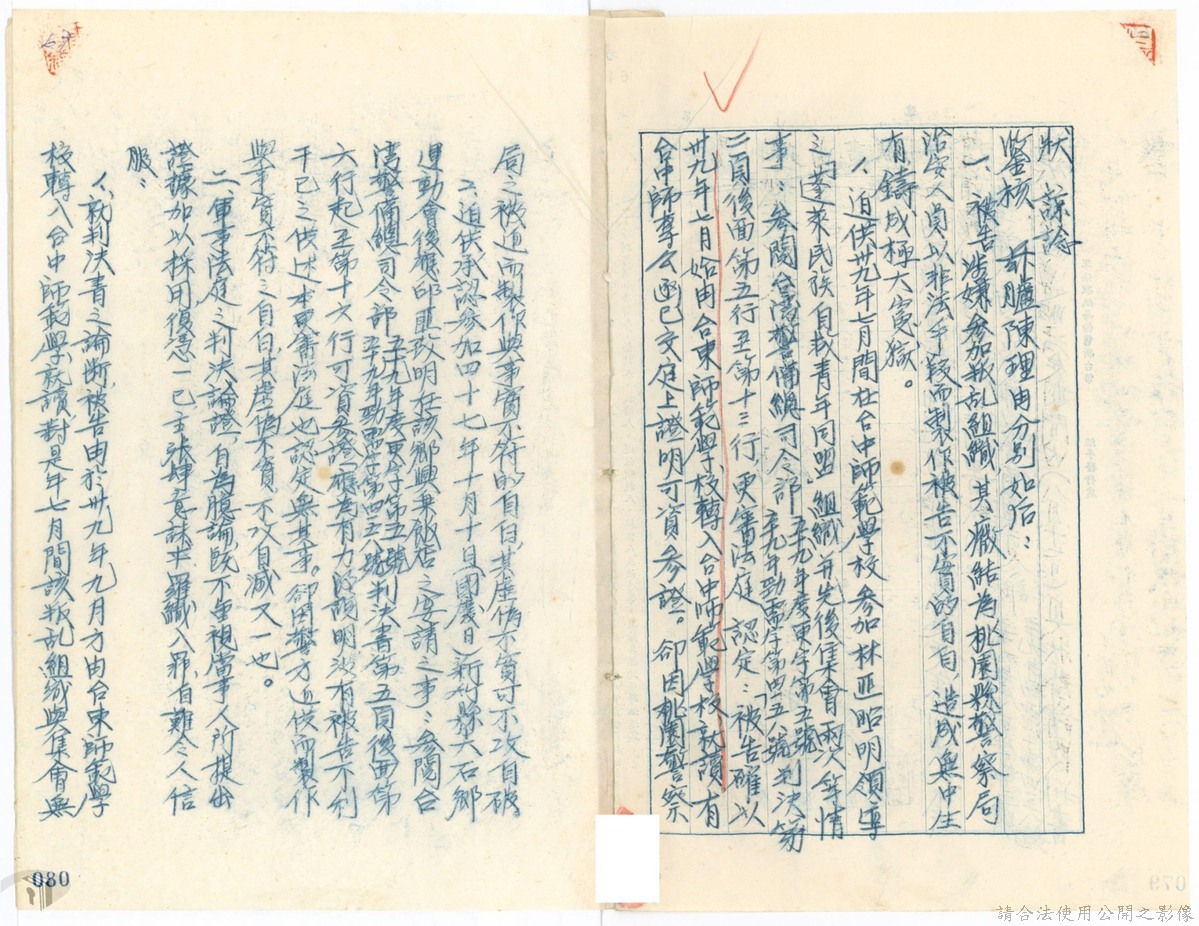 狀 諒諭
鑒核 茲臚陳理由分別如后：
一、被告涉嫌參加叛乱組織，其癥結為桃園縣警察局
治安人員以非法手段而製作被告不實的自白，造成無中生
有鑄成極大冤獄。
1、迫供卅九年七月間在台中師範學校參加林匪昭明領導
之「蓬萊民族自救青年同盟」組織并先後集會兩次等情
事：參閱台灣警備總司令部 五十九年度更字第五號
五十九年勁需字第四五八號 判決第
二頁後面第五行至第十三行，更審法庭認定：被告確以
卅九年七月始由台東師範學校轉入台中師範學校就讀有
台中師專公函已交庭上證明可資參證。卻因桃園警察
局之被迫而製作與事實不符的自白，其虛偽不實可不攻自破。
2、迫供承認參加四十七年十月十日（國慶日）新竹縣大石鄉
運動會後應邱匪改明在該鄉興東飯店之宴請之事：參閱台
灣警備總司令部 五十九年度更字第五號
五十九年勁需字第四五八號 判決書第五頁後面第
六行起至第十六行可資參證，應為有力的說明沒有被告不利
于己之供述本更審法庭也認定無其事。卻因警方迫供而製作
與事實不符之自白，其虛偽不實，不攻自滅又一也。
二、軍事法庭之判決、論證，自為臆論既不重視當事人所提出
證據加以採用復憑一己主張肆意誅求羅織入罪自難令人信
服：
1、就判決書之論斷，被告由於卅九年九月方由台東師範學
校轉入台中師範學就讀，對是年七月間該叛乱組織與集會無
080
079
請合法使用公開之影像